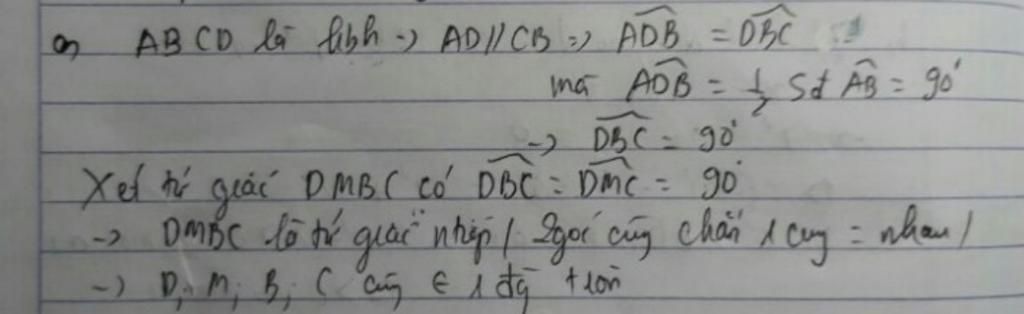 a) ABCD là hbh -> AD//CB => ADB = DBC
mà ADB = 1/2 Sđ AB = 90°
-> DBC = 90°
Xét tứ giác DMBC có DBC = DMC = 90°
-> DMBC là tứ giác ntiếp / 2góc cùng chắn 1 cung = nhau /
-> D, M, B, C cùng ∈ 1 đg tròn